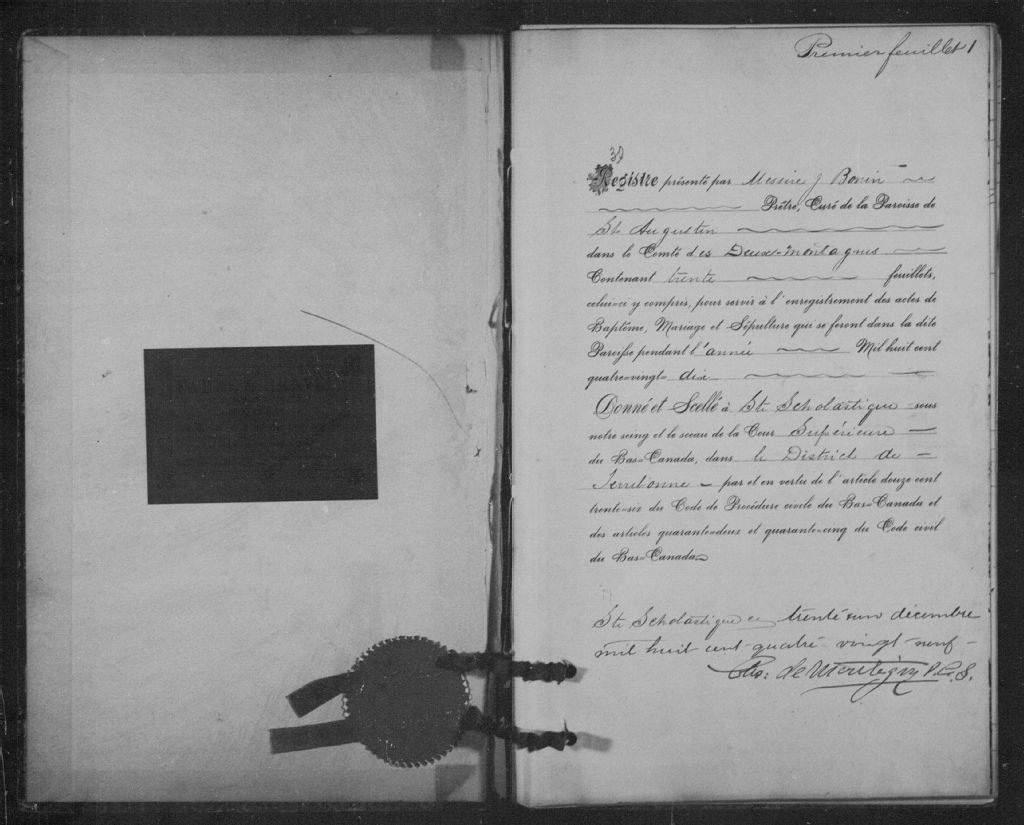 Premier feuillet 1
30
Registre présenté par Messire J Bonin
Prêtre, Curé de la Paroisse de
St Augustin
dans le Comté des Deux-Montagnes
Contenant trente feuillets,
celui-ci y compris, pour servir à l'enregistrement des actes de
Baptême, Mariage et Sépulture qui se feront dans la dite
Paroisse pendant l'année Mil huit cent
quatre-vingt-dix
Donné et Scellé à Ste Scholastique sous
notre seing et le sceau de la Cour Supérieure
du Bas-Canada, dans le District de
Terrebonne par et en vertu de l'article douze cent
trente-six du Code de Procédure civile du Bas-Canada et
des articles quarante-deux et quarante-cinq du Code civil
du Bas-Canada
Ste Scholastique ce trente un décembre
mil huit cent quatre-vingt-neuf-
de Montigny P.C.S.